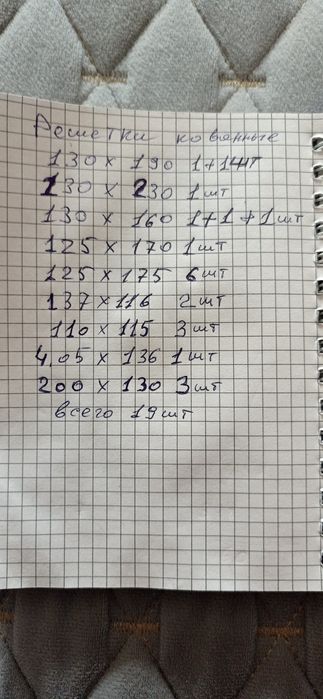 Решетки кованные
130 x 190 1+1шт
130 x 230 1шт
130 x 160 1+1+1шт
125 x 170 1шт
125 x 175 6шт
137 x 116 2шт
110 x 115 3шт
4,05 x 136 1шт
200 x 130 3шт
всего 19шт